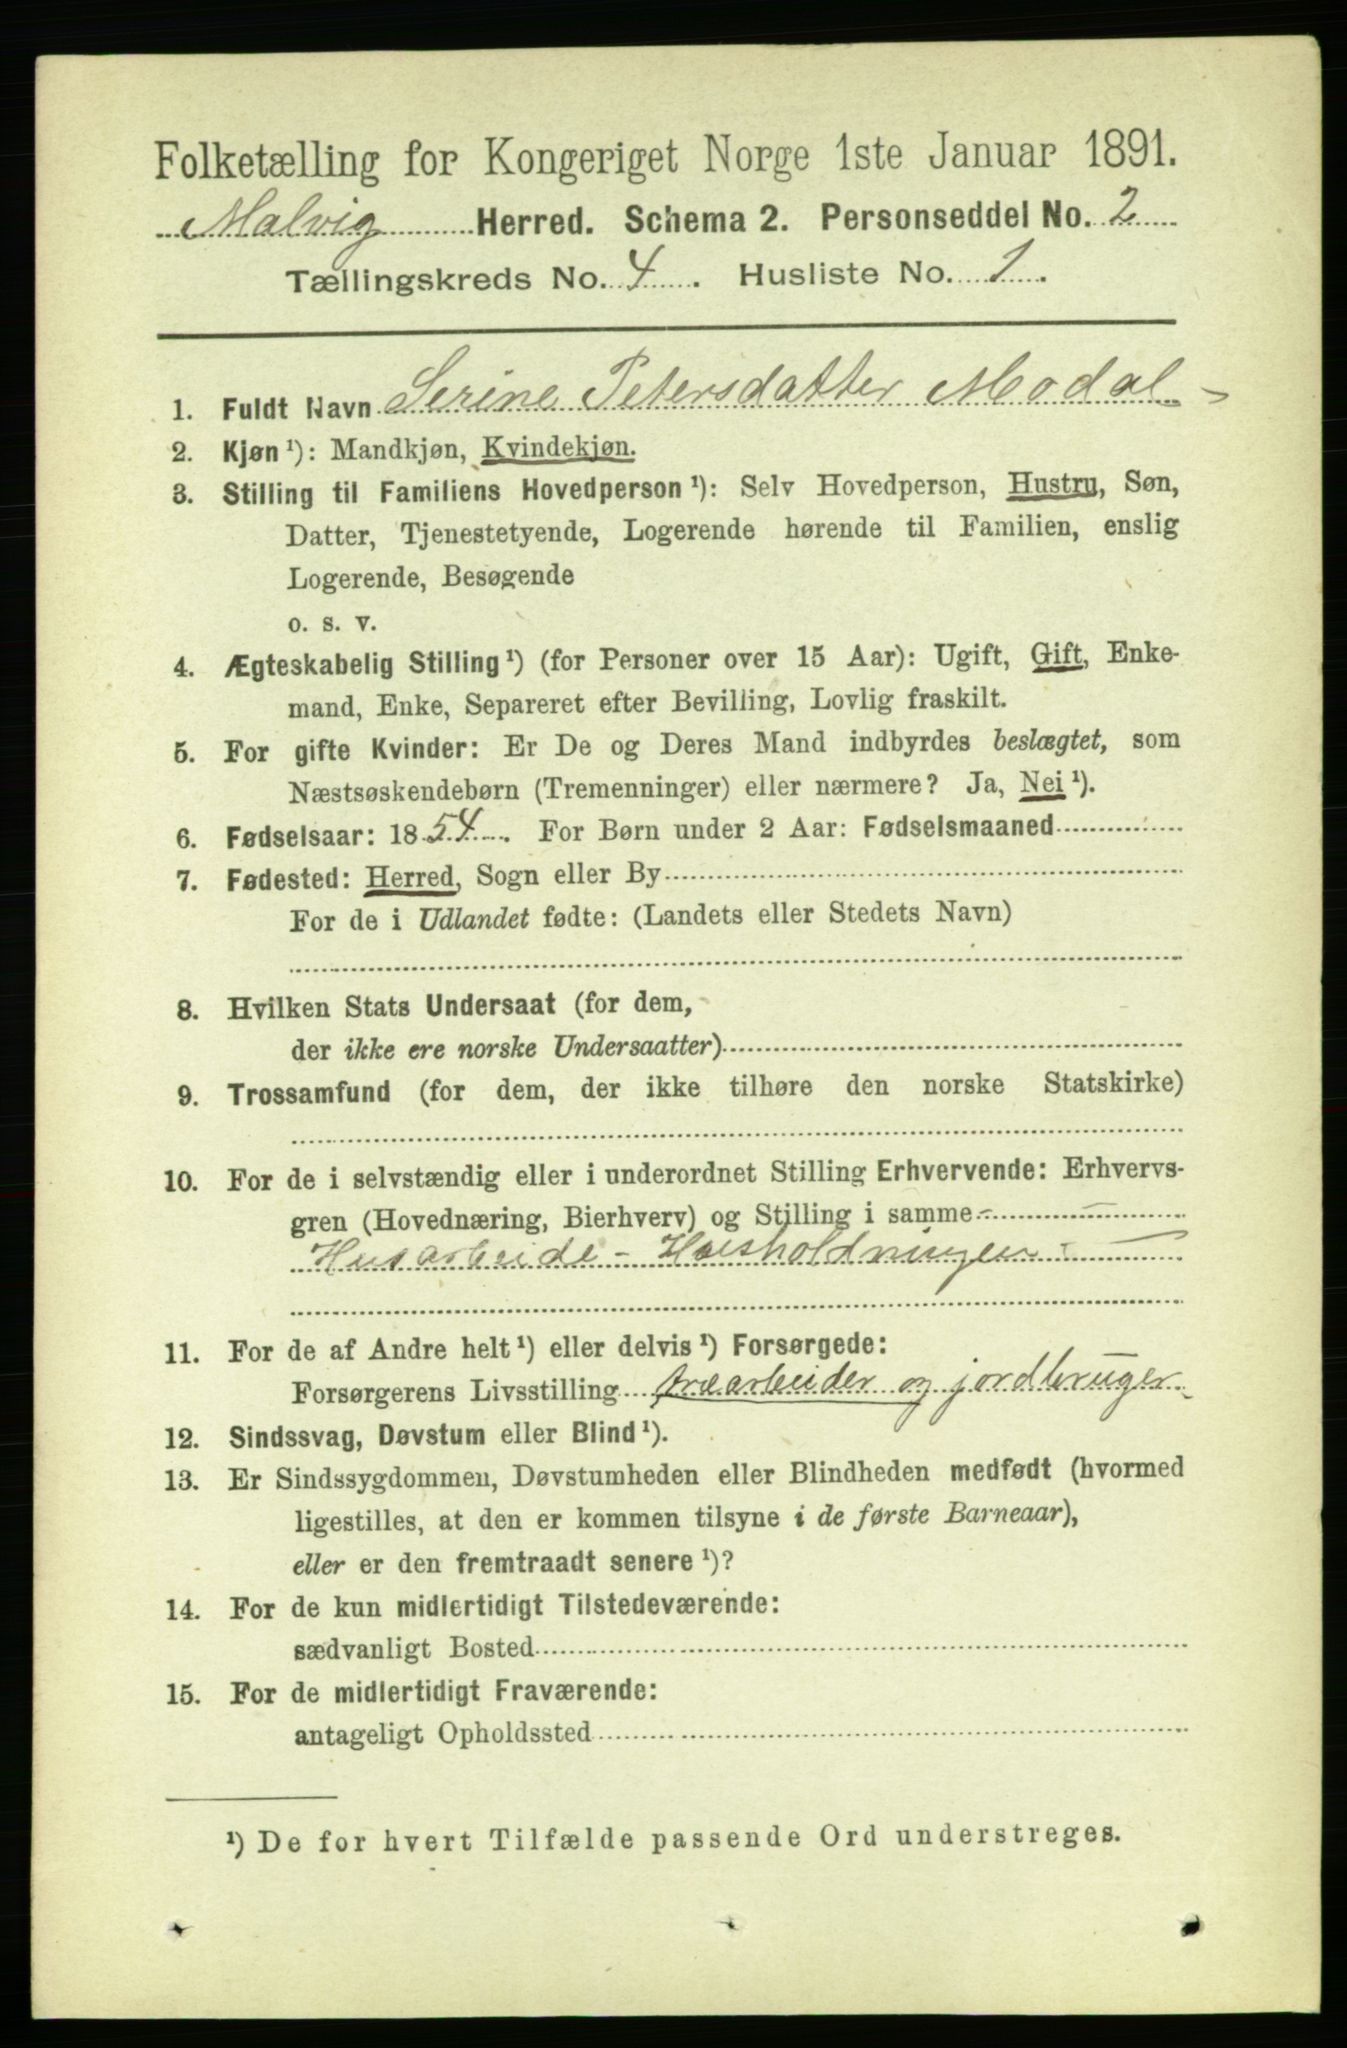 Folketælling for Kongeriget Norge 1ste Januar 1891.
Malvig Herred. Schema 2. Personseddel No. 2
Tællingskreds No. 4. Husliste No. 1.
1. Fuldt Navn Serine Petersdatter Modal -
2. Kjøn ¹): Mandkjøn, Kvindekjøn.
3. Stilling til Familiens Hovedperson ¹): Selv Hovedperson, Hustru, Søn,
Datter, Tjenestetyende, Logerende hørende til Familien, enslig
Logerende, Besøgende
o. s. v.
4. Ægteskabelig Stilling ¹) (for Personer over 15 Aar): Ugift, Gift, Enke-
mand, Enke, Separeret efter Bevilling, Lovlig fraskilt.
5. For gifte Kvinder: Er De og Deres Mand indbyrdes beslægtet, som
Næstsøskendebørn (Tremenninger) eller nærmere? Ja, Nei ¹).
6. Fødselsaar: 1854. For Børn under 2 Aar: Fødselsmaaned
7. Fødested: Herred, Sogn eller By
For de i Udlandet fødte: (Landets eller Stedets Navn)
8. Hvilken Stats Undersaat (for dem,
der ikke ere norske Undersaatter)
9. Trossamfund (for dem, der ikke tilhøre den norske Statskirke)
10. For de i selvstændig eller i underordnet Stilling Erhvervende: Erhvervs-
gren (Hovednæring, Bierhverv) og Stilling i samme - —
Husarbeide - Huusholdningen - —
11. For de af Andre helt ¹) eller delvis ¹) Forsørgede:
Forsørgerens Livsstilling træarbeider og jordbruger
12. Sindssvag, Døvstum eller Blind ¹).
13. Er Sindssygdommen, Døvstumheden eller Blindheden medfødt (hvormed
ligestilles, at den er kommen tilsyne i de første Barneaar),
eller er den fremtraadt senere ¹)?
14. For de kun midlertidigt Tilstedeværende:
sædvanligt Bosted
15. For de midlertidigt Fraværende:
antageligt Opholdssted
¹) De for hvert Tilfælde passende Ord understreges.